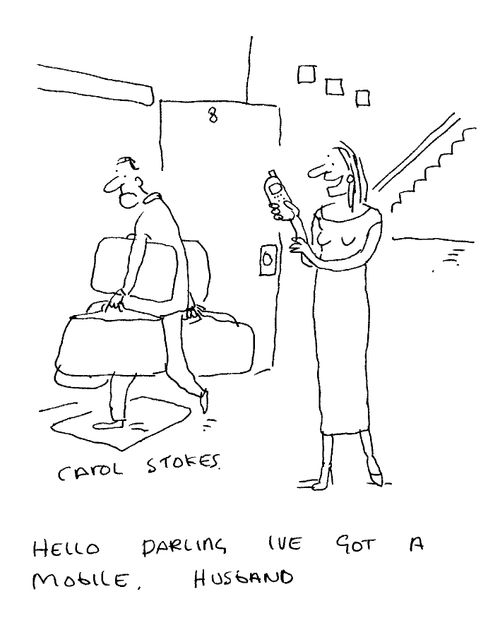 8
CAROL STOKES.
HELLO DARLING IVE GOT A
MOBILE. HUSBAND